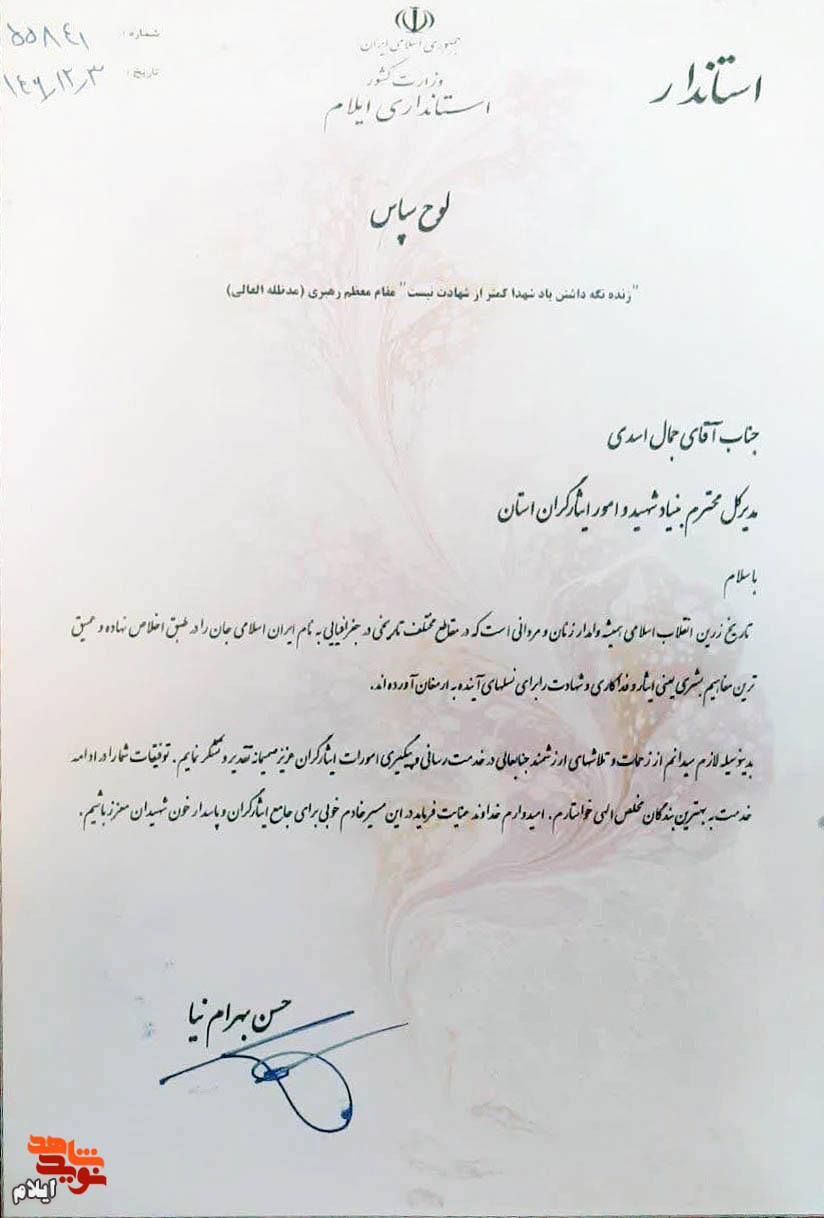 جمهوری اسلامی ایران
وزارت کشور
استانداری ایلام
استاندار
شماره: ٥٥٨٤١
تاریخ:
لوح سپاس
"زنده نگه داشتن یاد شهدا کمتر از شهادت نیست" مقام معظم رهبری (مدظله العالی)
جناب آقای جمال اسدی
مدیرکل محترم بنیاد شهید و امور ایثارگران استان
با سلام
تاریخ زرین انقلاب اسلامی همیشه وامدار زنان و مردانی است که در مقاطع مختلف تاریخی در جغرافیایی به نام ایران اسلامی جان را در طبق اخلاص نهاده و عمیق
ترین مفاهیم بشری یعنی ایثار و فداکاری و شهادت را برای نسلهای آینده به ارمغان آورده اند.
بدینوسیله لازم میدانم از زحمات و تلاشهای ارزشمند جنابعالی در خدمت رسانی و پیگیری امورات ایثارگران عزیز صمیمانه تقدیر و تشکر نمایم. توفیقات شما را در ادامه
خدمت به بهترین بندگان مخلص الهی خواستارم. امیدوارم خداوند عنایت فرماید در این مسیر خادم خوبی برای جامع ایثارگران و پاسدار خون شهیدان معزز باشیم.
حسن بهرام نیا
نوید شاهد
ایلام